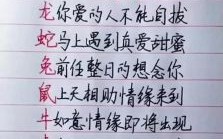 龙你爱的人不能自拔
蛇马上遇到真爱甜蜜
兔前任整日的想念你
鼠上天相助情缘来到
牛如意情缘即将出现